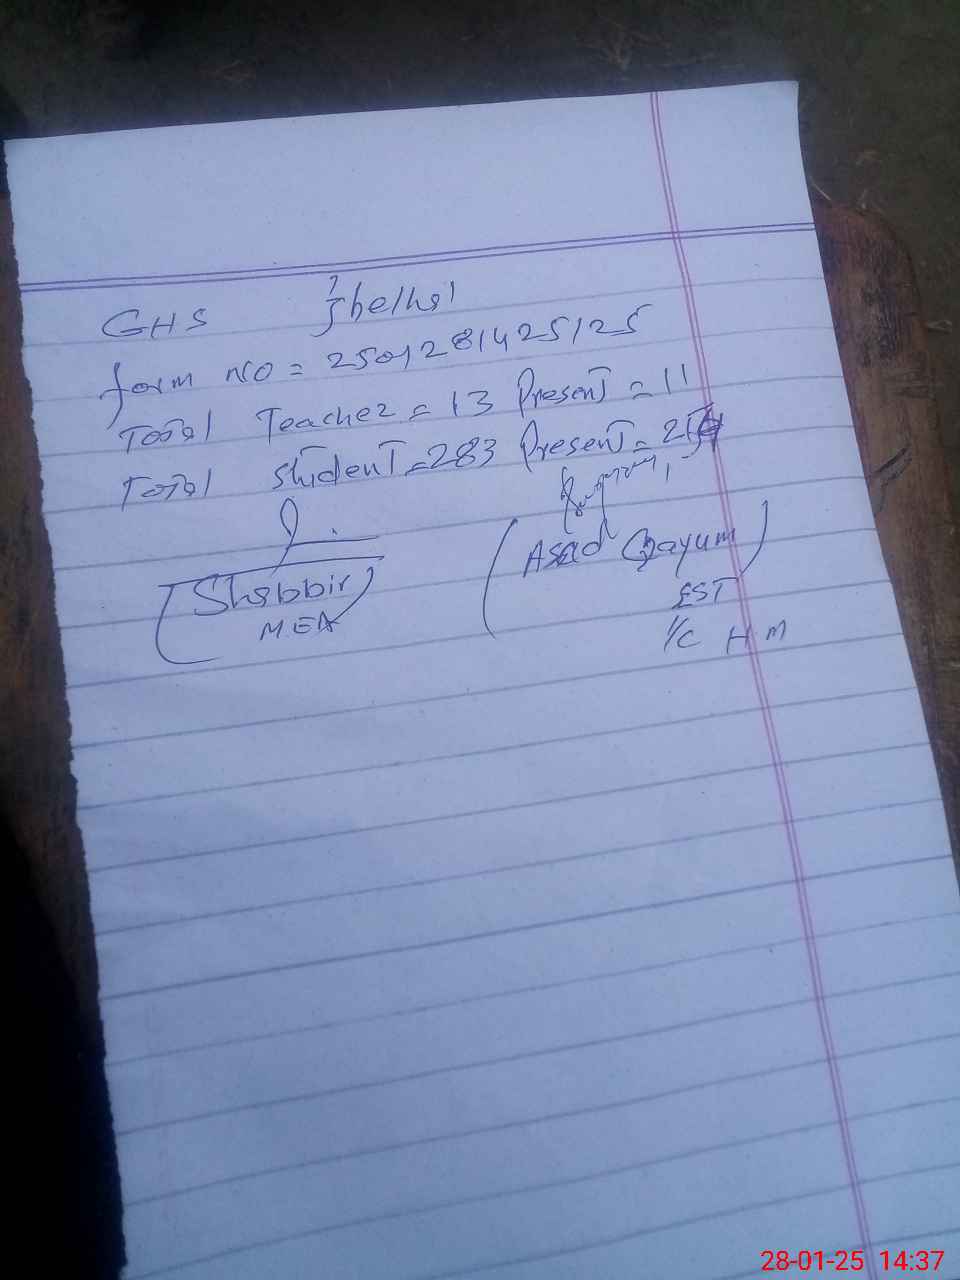 GHS
form NO = 250128142525
Total Teacher = 13 Present = 11
Total Student = 283 Present =
(Shabbir)
MEA
(Asad Qayum)
EST
I/C HM
28-01-25 14:37